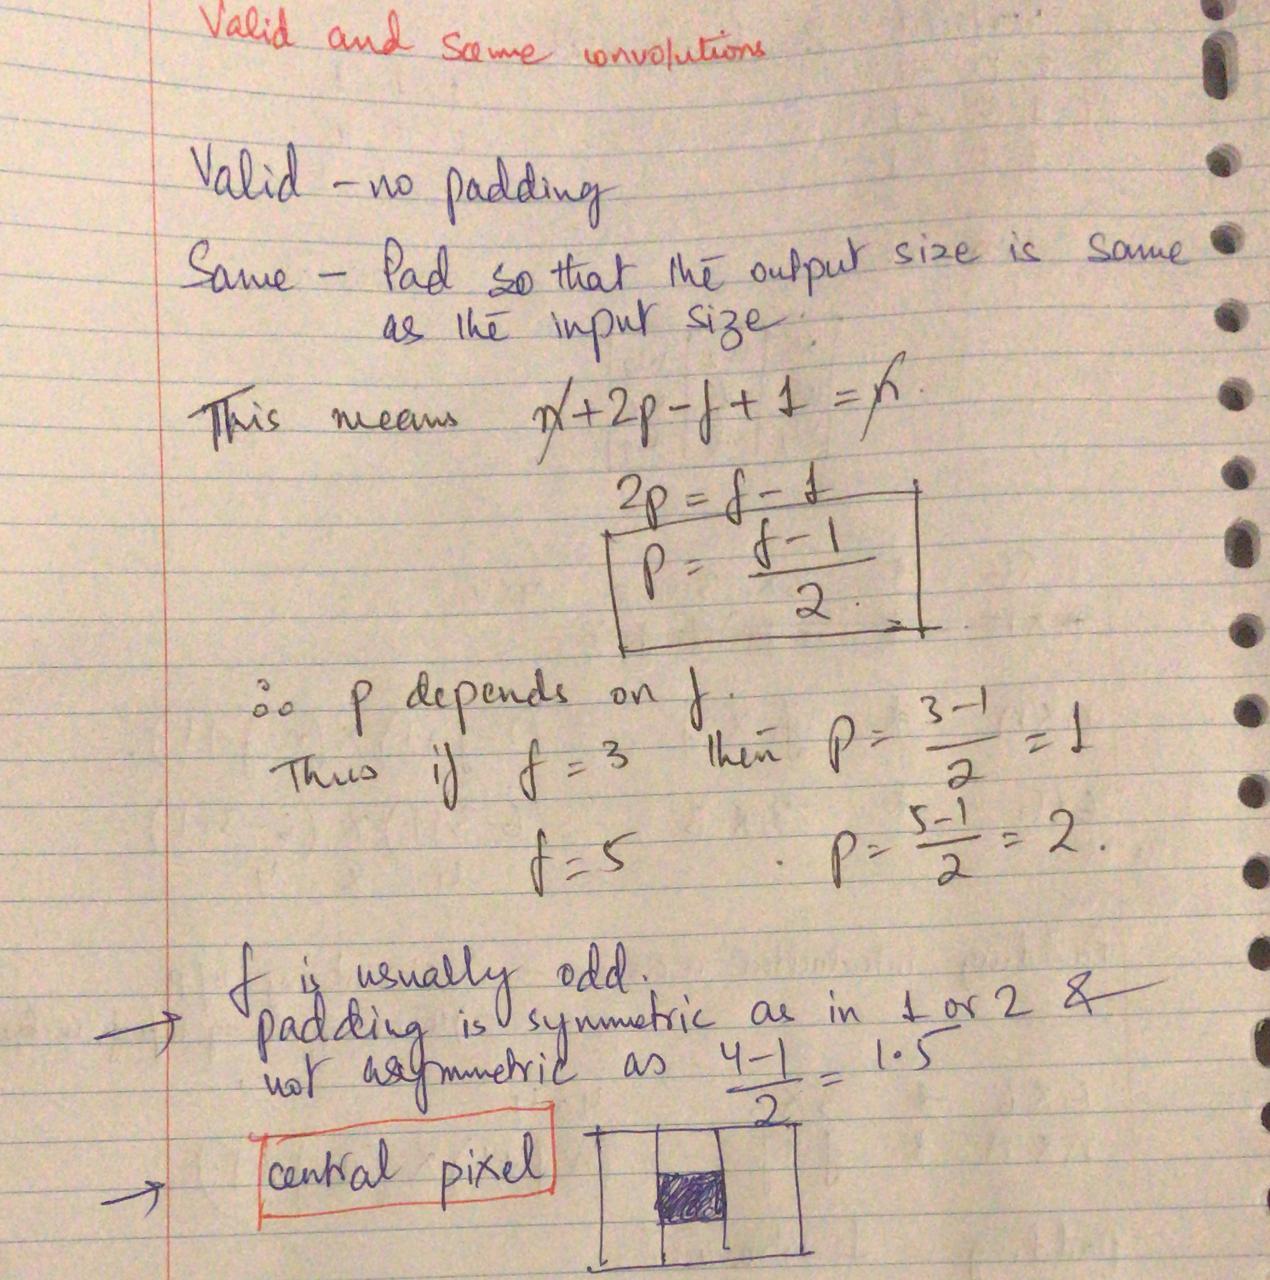 Valid and same convolutions
Valid - no padding
Same - Pad so that the output size is same
as the input size.
This means n+2p-f+1 = n.
2p = f-1
p = f-1/2
∴ p depends on f.
Thus if f = 3 then p = 3-1/2 = 1
f = 5 . p = 5-1/2 = 2.
f is usually odd.
→ padding is symmetric as in 1 or 2 &
not asymmetric as 4-1/2 = 1.5
→ central pixel